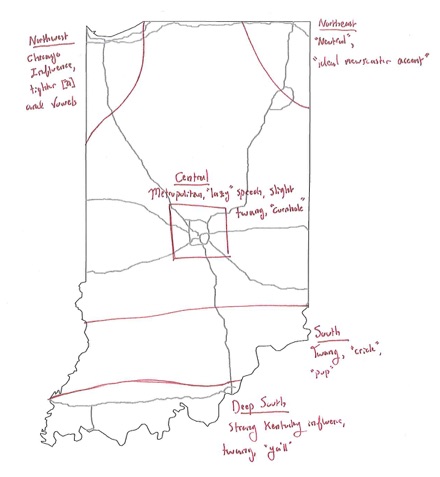 Northwest
Chicago
Influence,
tighter [æ]
and vowels
Northeast
"Neutral",
"ideal newscaster accent"
Central
Metropolitan, "lazy" speech, slight
twang, "cornhole"
South
Twang, "crick",
"pop"
Deep South
Strong Kentucky influence,
twang, "ya'll"